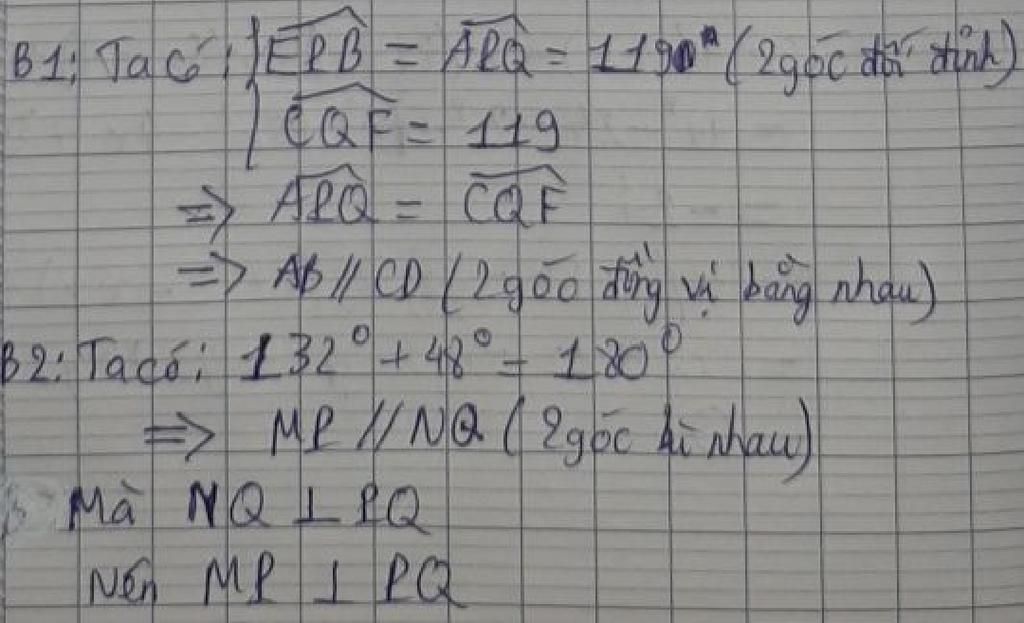 B1: Ta có: EPB = APQ = 119° (2 góc đối đỉnh)
CQF = 119
=> APQ = CQF
=> AB // CD (2 góc đồng vị bằng nhau)
B2: Ta có: 132° + 48° = 180°
=> MP // NQ (2 góc nhau)
Mà NQ ⊥ PQ
Nên MP ⊥ PQ